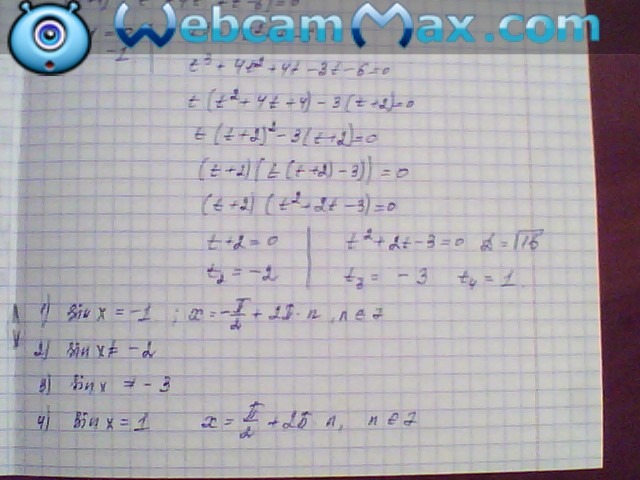 WebcamMax.com
t³ + 4t² + 4t - 3t - 6 = 0
t (t² + 4t + 4) - 3 (t + 2) = 0
t (t + 2)² - 3 (t + 2) = 0
(t + 2) (t (t + 2) - 3)) = 0
(t + 2) (t² + 2t - 3) = 0
t + 2 = 0 | t² + 2t - 3 = 0 D = √16
t₂ = -2 | t₃ = -3 t₄ = 1.
1) sin x = -1 ; x = -π/2 + 2π · n, n ∈ Z
2) sin x ≠ -2
3) sin x ≠ -3
4) sin x = 1 x = π/2 + 2π n, n ∈ Z